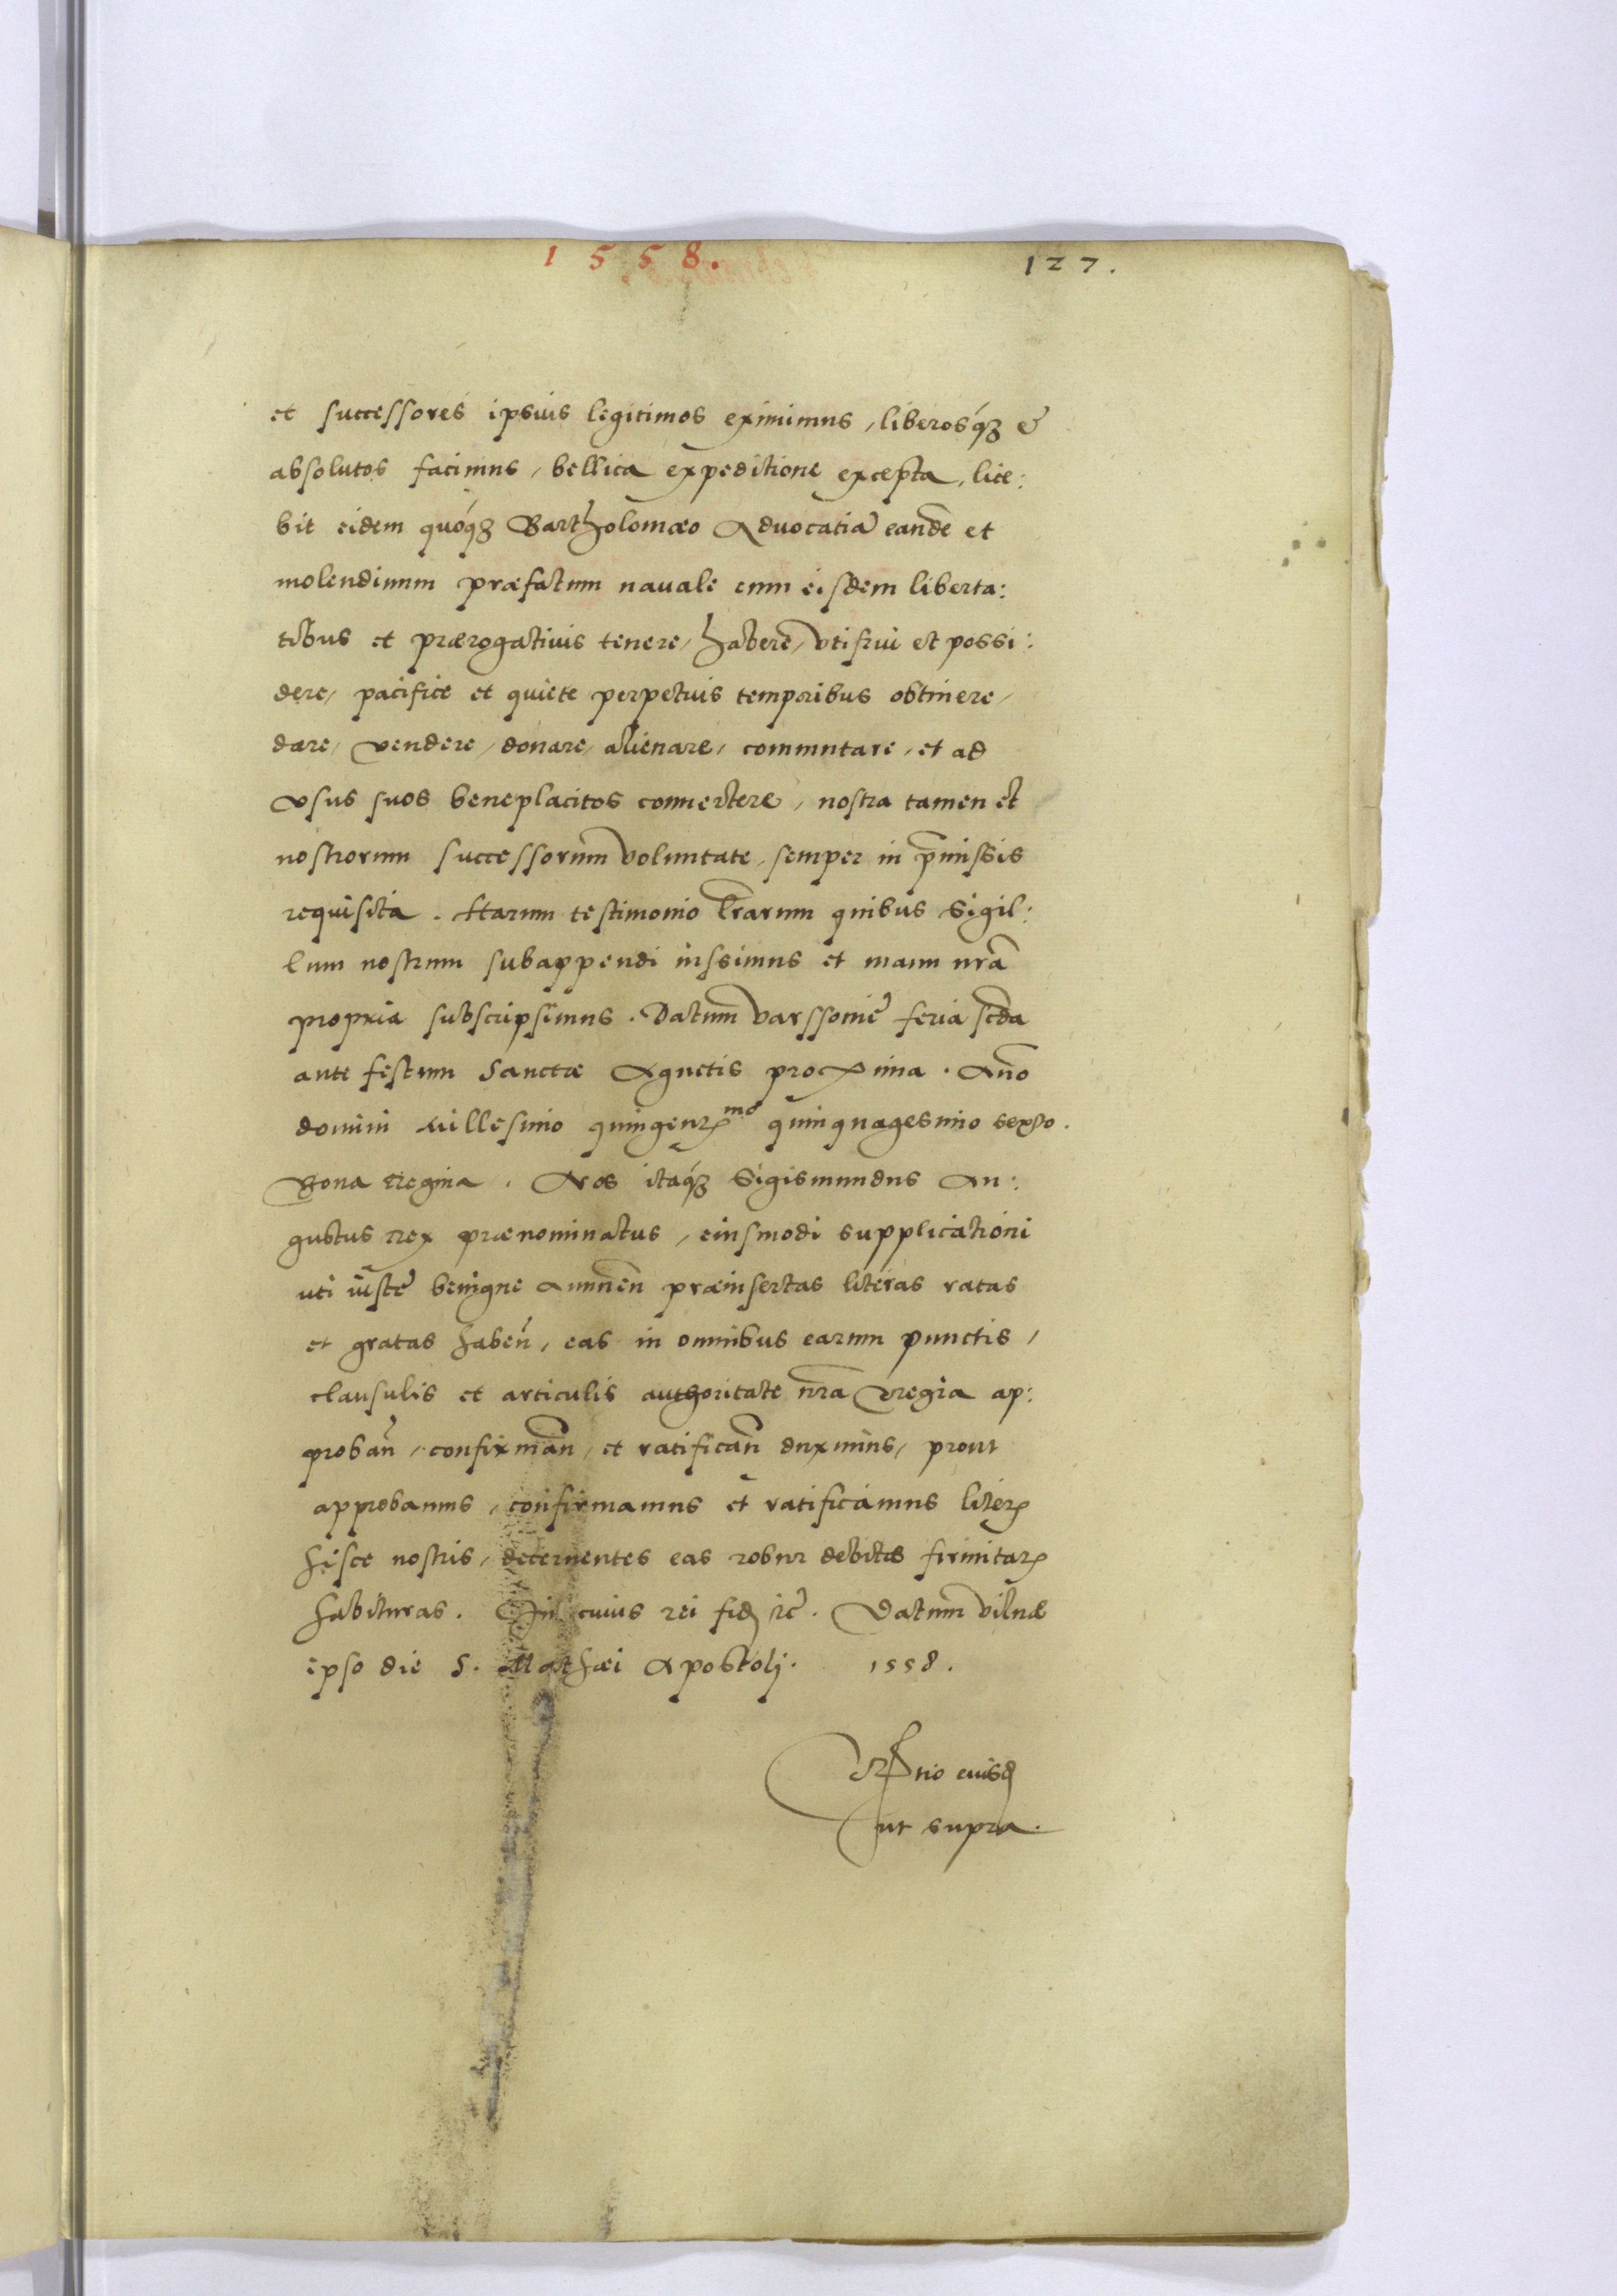 1558. 127.
et successores ipsius legitimos eximimus, liberosq́ꝫ &
absolutos facimus, bellica expeditione excepta, lice:
bit eidem quóqꝫ Bartholomæo Advocatiã eandẽ et
molendinum præfatum nauale cum eisdem liberta:
tibus et prærogativis tenere, habere, vtifrui et possi:
dere, pacifice et quiete perpetuis temporibus obtinere,
dare, vendere, donare, alienare, commutare, et ad
vsus suos beneplacitos conuertere, nostra tamen et
nostrorum successorum voluntate, semper in p̃missis
requisita. Harum testimonio l̃rarum quibus Sigil:
lum nostrum subappendi iussimus et manu nrã
propria subscripsimus. Datum Varssouie feria scđa
ante festum Sanctæ Agnetis proxima. Año
domini Millesimo quingenꝝmo quinquagesimo sexto.
Bona Regina. Nos itaq́ꝫ Sigismundus Au:
gustus Rex prænominatus, eiusmodi supplicationi
uti iuste benigne Annuen̄ præinsertas literas ratas
et gratas haben̄, eas in omnibus earum punctis,
clausulis et articulis authoritate nr̃a Regia ap:
proban̄, confirman̄, et ratifican̄ duximus, prout
approbamus, confirmamus et ratificamus literꝝ
hisce nostris, decernentes eas robur debitæ firmitatꝝ
habituras. In cuius rei fidē rc̃. Datum Vilnæ
ipso die S. Mathæi Apostolj. 1558.
Rtio eiusđ
ut supra.